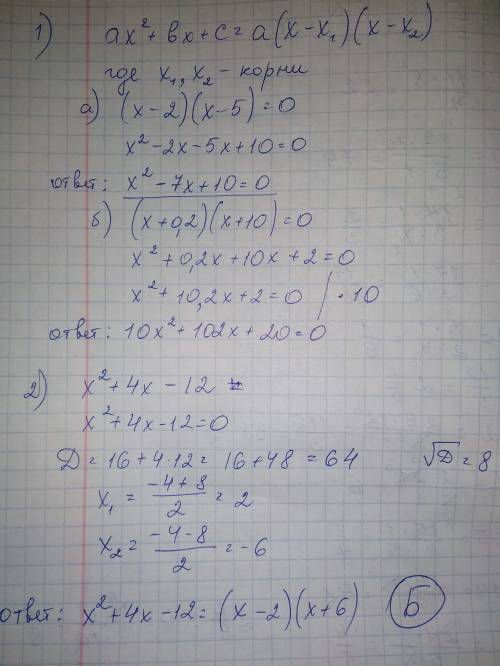 1) ax² + bx + c = a(x - x₁)(x - x₂)
где x₁, x₂ - корни
а) (x - 2)(x - 5) = 0
x² - 2x - 5x + 10 = 0
ответ: x² - 7x + 10 = 0
б) (x + 0,2)(x + 10) = 0
x² + 0,2x + 10x + 2 = 0
x² + 10,2x + 2 = 0 / · 10
ответ: 10x² + 102x + 20 = 0
2) x² + 4x - 12
x² + 4x - 12 = 0
D = 16 + 4·12 = 16 + 48 = 64 √D = 8
x₁ = (-4 + 8)/2 = 2
x₂ = (-4 - 8)/2 = -6
ответ: x² + 4x - 12 = (x - 2)(x + 6) Б